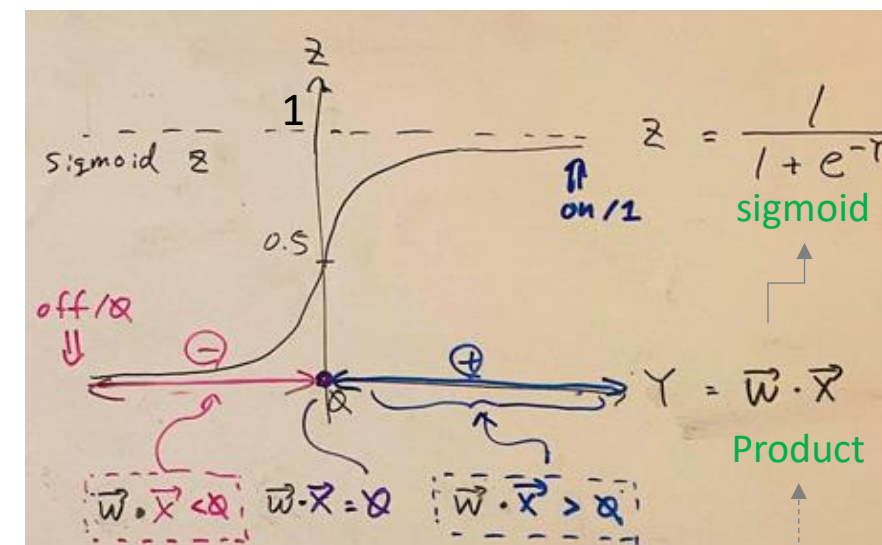 Z
1
sigmoid Z
Z = 1 / 1 + e^-Y
on/1
sigmoid
0.5
off/0
−
+
0
Y = W⃗ · X⃗
Product
W⃗ · X⃗ < 0
W⃗ · X⃗ = 0
W⃗ · X⃗ > 0